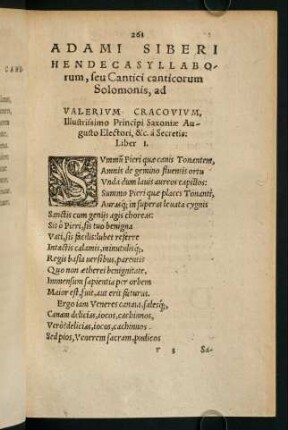 261
ADAMI SIBERI
HENDECASYLLABO-
rum, seu Cantici canticorum
Solomonis, ad
VALERIVM CRACOVIVM,
Illustrissimo Principi Saxoniæ Au-
gusto Electori, &c. à Secretis:
Liber I.
SVmmū Pieri quæ canis Tonantem,
Amnis de gemino fluentis ortu
Vnda dum lauis aureos capillos:
Summo Pieri quæ places Tonāti,
Auratisq́; in supera leuata cygnis
Sanctis cum genijs agis choreas:
Sis ô Pieri, sis tuo benigna
Vati, sis facilis: lubet referre
Intactis calamis, minutulisq́;
Regis basia versibus, parentis
Quo non ætherei benignitate,
Immensum sapientia per orbem
Maior est, fuit, aut erit futurus.
Ergo iam Veneres cana, salesq́;
Canam delicias, iocos, cachinnos,
Veròs delicias, iocos, cachinnos.
Sed pios, Venerem sacram, pudicos